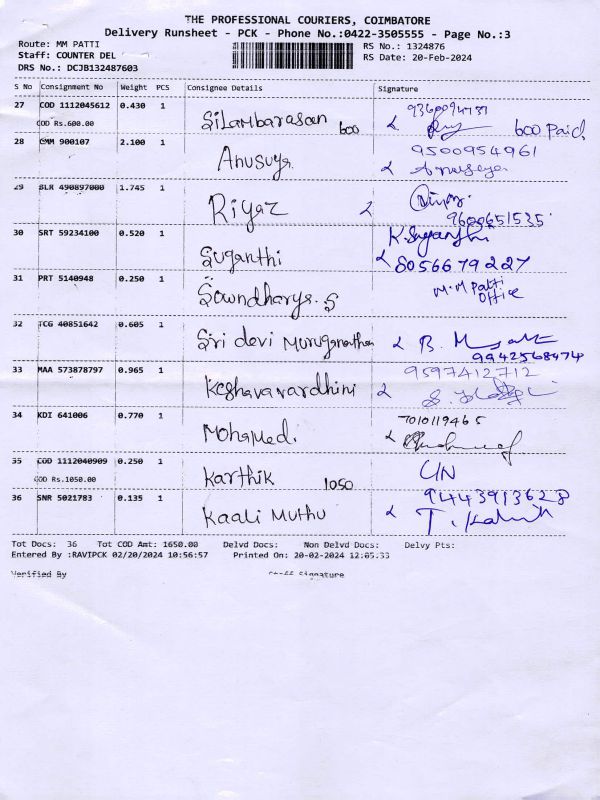 THE PROFESSIONAL COURIERS, COIMBATORE
Delivery Runsheet - PCK - Phone No.:0422-3505555 - Page No.:3
Route: MM PATTI RS No.: 1324876
Staff: COUNTER DEL RS Date: 20-Feb-2024
DRS No.: DCJB132487603
S No Consignment No Weight PCS Consignee Details Signature
27 COD 1112045612 0.430 1 Silambarasan 600
COD Rs.600.00 600 Paid
28 GMM 900107 2.100 1 Anusuya 9500954961
Anusuya
29 BLR 490897000 1.745 1 Riyaz
9600651535
30 SRT 59234100 0.520 1 Suganthi K.Suganthi
8056679227
31 PRT 5140948 0.250 1 Soundharya.S M.M Patti
Office
32 TCG 40851642 0.605 1 Sri devi Muruganathan
9942568474
33 MAA 573878797 0.965 1 Keshavavardhini 9597412712
34 KDI 641006 0.770 1 Mohamed. 7010119465
35 COD 1112040909 0.250 1 Karthik 1050
COD Rs.1050.00
36 SNR 5021783 0.135 1 Kaali Muthu 9443913628
Tot Docs: 36 Tot COD Amt: 1650.00 Delvd Docs: Non Delvd Docs: Delvy Pts:
Entered By :RAVIPCK 02/20/2024 10:56:57 Printed On: 20-02-2024 12:05.33
Verified By Staff Signature